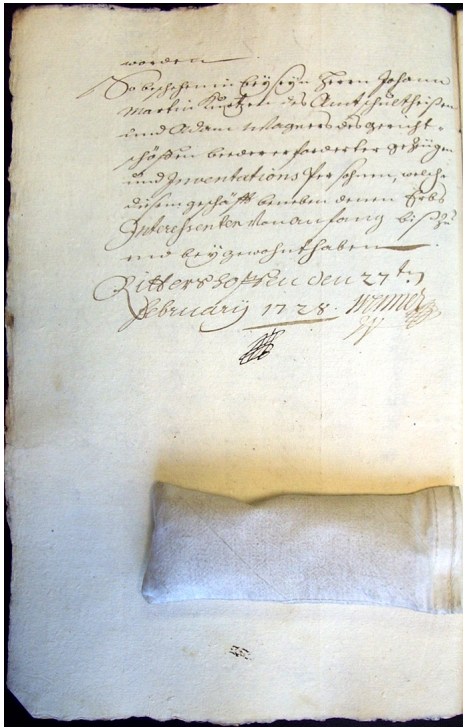 worden
So beschehen in beÿseÿn Herrn Johann
Martin Kurtzen des Amtschultheisen
und Adam Wagners des gericht-
schöffen beeder erforderter gezeügen
und Inventations Persohnen, welche
diesem geschäfft beneben denen Erbs
Interessenten von anfang biß zu
end beÿgewohnt haben
Rittershoffen den 27ten
Februarÿ 1728.